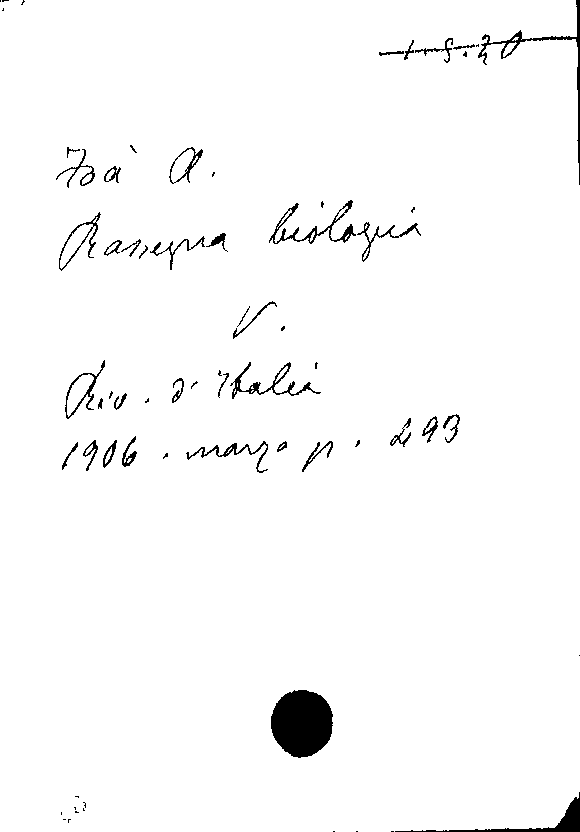 1.9.20
Isà A.
Rassegna biologia
V.
Riv. d'Italia
1906. marzo p. 293